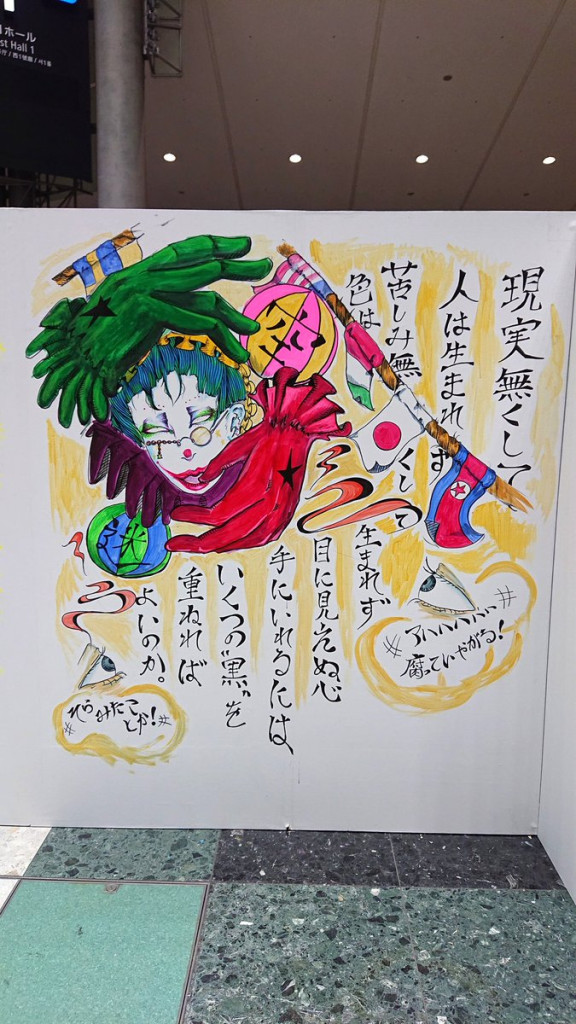 1ホール
st Hall 1
現実無くして
人は生まれず
苦しみ無くして
色は
生まれず
目に見えぬ心
手にいれるには
いくつの"黒"を
重ねれば
よいのか。
アハハハハハ
腐っていやがる!
そらみたこ
とか!